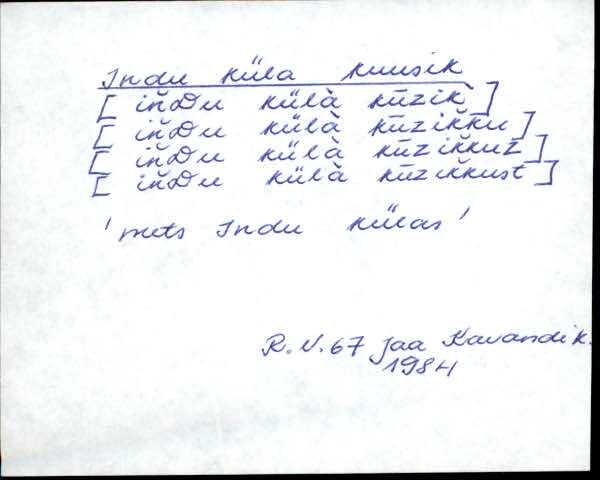 Indu küla kuusik
[ iňᴅu külà kūzik̀ ]
[ iňᴅu külà kūzik̆ku ]
[ iňᴅu külà kūzik̆kuz ]
[ iňᴅu külà kūzik̆kust ]
'mets Indu külas'
R. V. 67 Jaa Kavandik.
1984